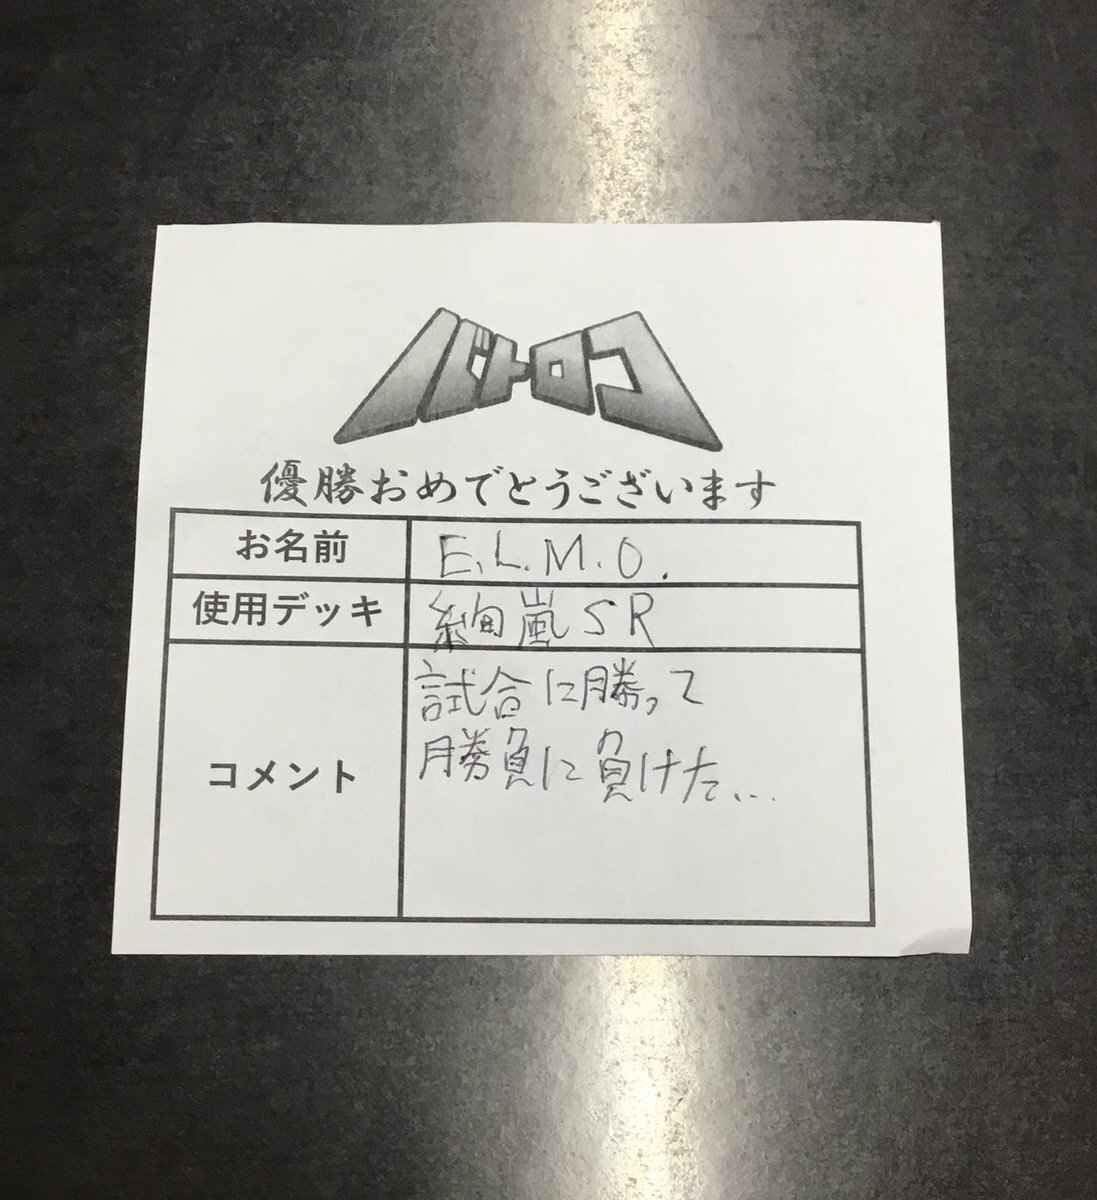 バトロコ
優勝おめでとうございます
お名前
E.L.M.O.
使用デッキ
絢嵐SR
コメント
試合に勝って
勝負に負けた...